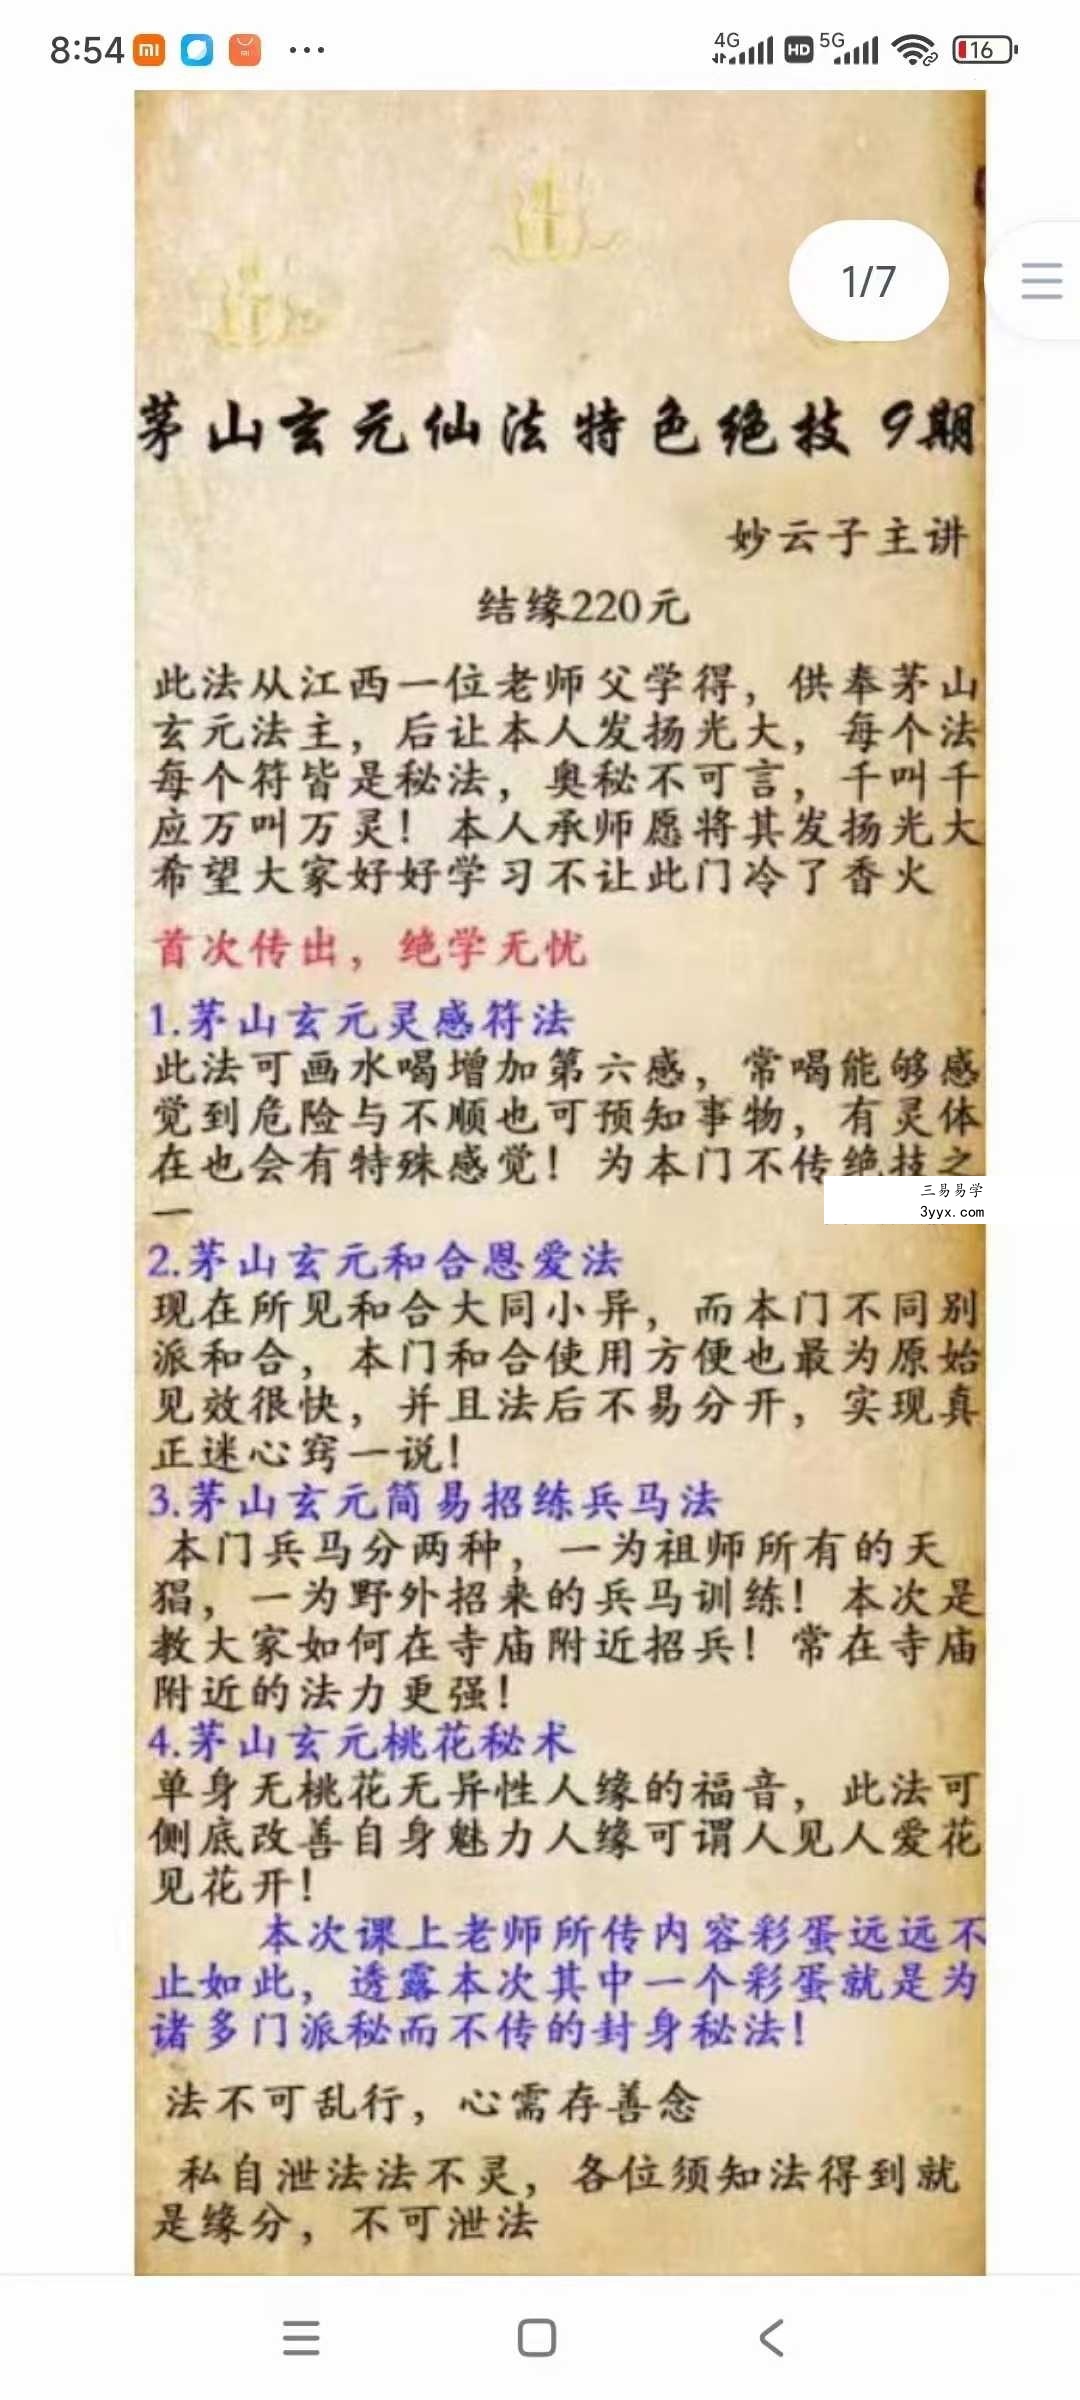 8:54
4G
HD
5G
16
1/7
茅山玄元仙法特色绝技 9期
妙云子主讲
结缘220元
此法从江西一位老师父学得，供奉茅山
玄元法主，后让本人发扬光大，每个法
每个符皆是秘法，奥秘不可言，千叫千
应万叫万灵！本人承师愿将其发扬光大
希望大家好好学习不让此门冷了香火
首次传出，绝学无忧
1.茅山玄元灵感符法
此法可画水喝增加第六感，常喝能够感
觉到危险与不顺也可预知事物，有灵体
在也会有特殊感觉！为本门不传绝技之
一
三易易学
3yyx.com
2.茅山玄元和合恩爱法
现在所见和合大同小异，而本门不同别
派和合，本门和合使用方便也最为原始
见效很快，并且法后不易分开，实现真
正迷心窍一说！
3.茅山玄元简易招练兵马法
本门兵马分两种，一为祖师所有的天
猖，一为野外招来的兵马训练！本次是
教大家如何在寺庙附近招兵！常在寺庙
附近的法力更强！
4.茅山玄元桃花秘术
单身无桃花无异性人缘的福音，此法可
侧底改善自身魅力人缘可谓人见人爱花
见花开！
本次课上老师所传内容彩蛋远远不
止如此，透露本次其中一个彩蛋就是为
诸多门派秘而不传的封身秘法！
法不可乱行，心需存善念
私自泄法法不灵，各位须知法得到就
是缘分，不可泄法